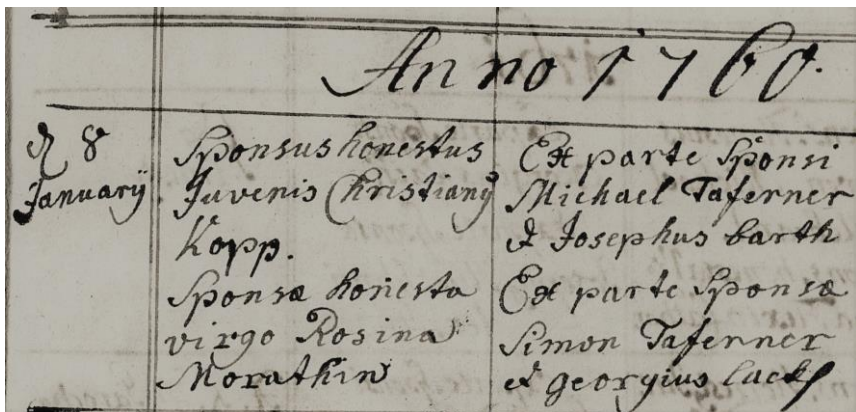 Anno 1760.
8
Januarij
Sponsus honestus
Juvenis Christiany
Kopp.
Sponsæ honesta
virgo Rosina
Morathin
Ex parte Sponsi
Michael Taferner
& Josephus barth
Ex parte Sponsæ
Simon Taferner
& georgius